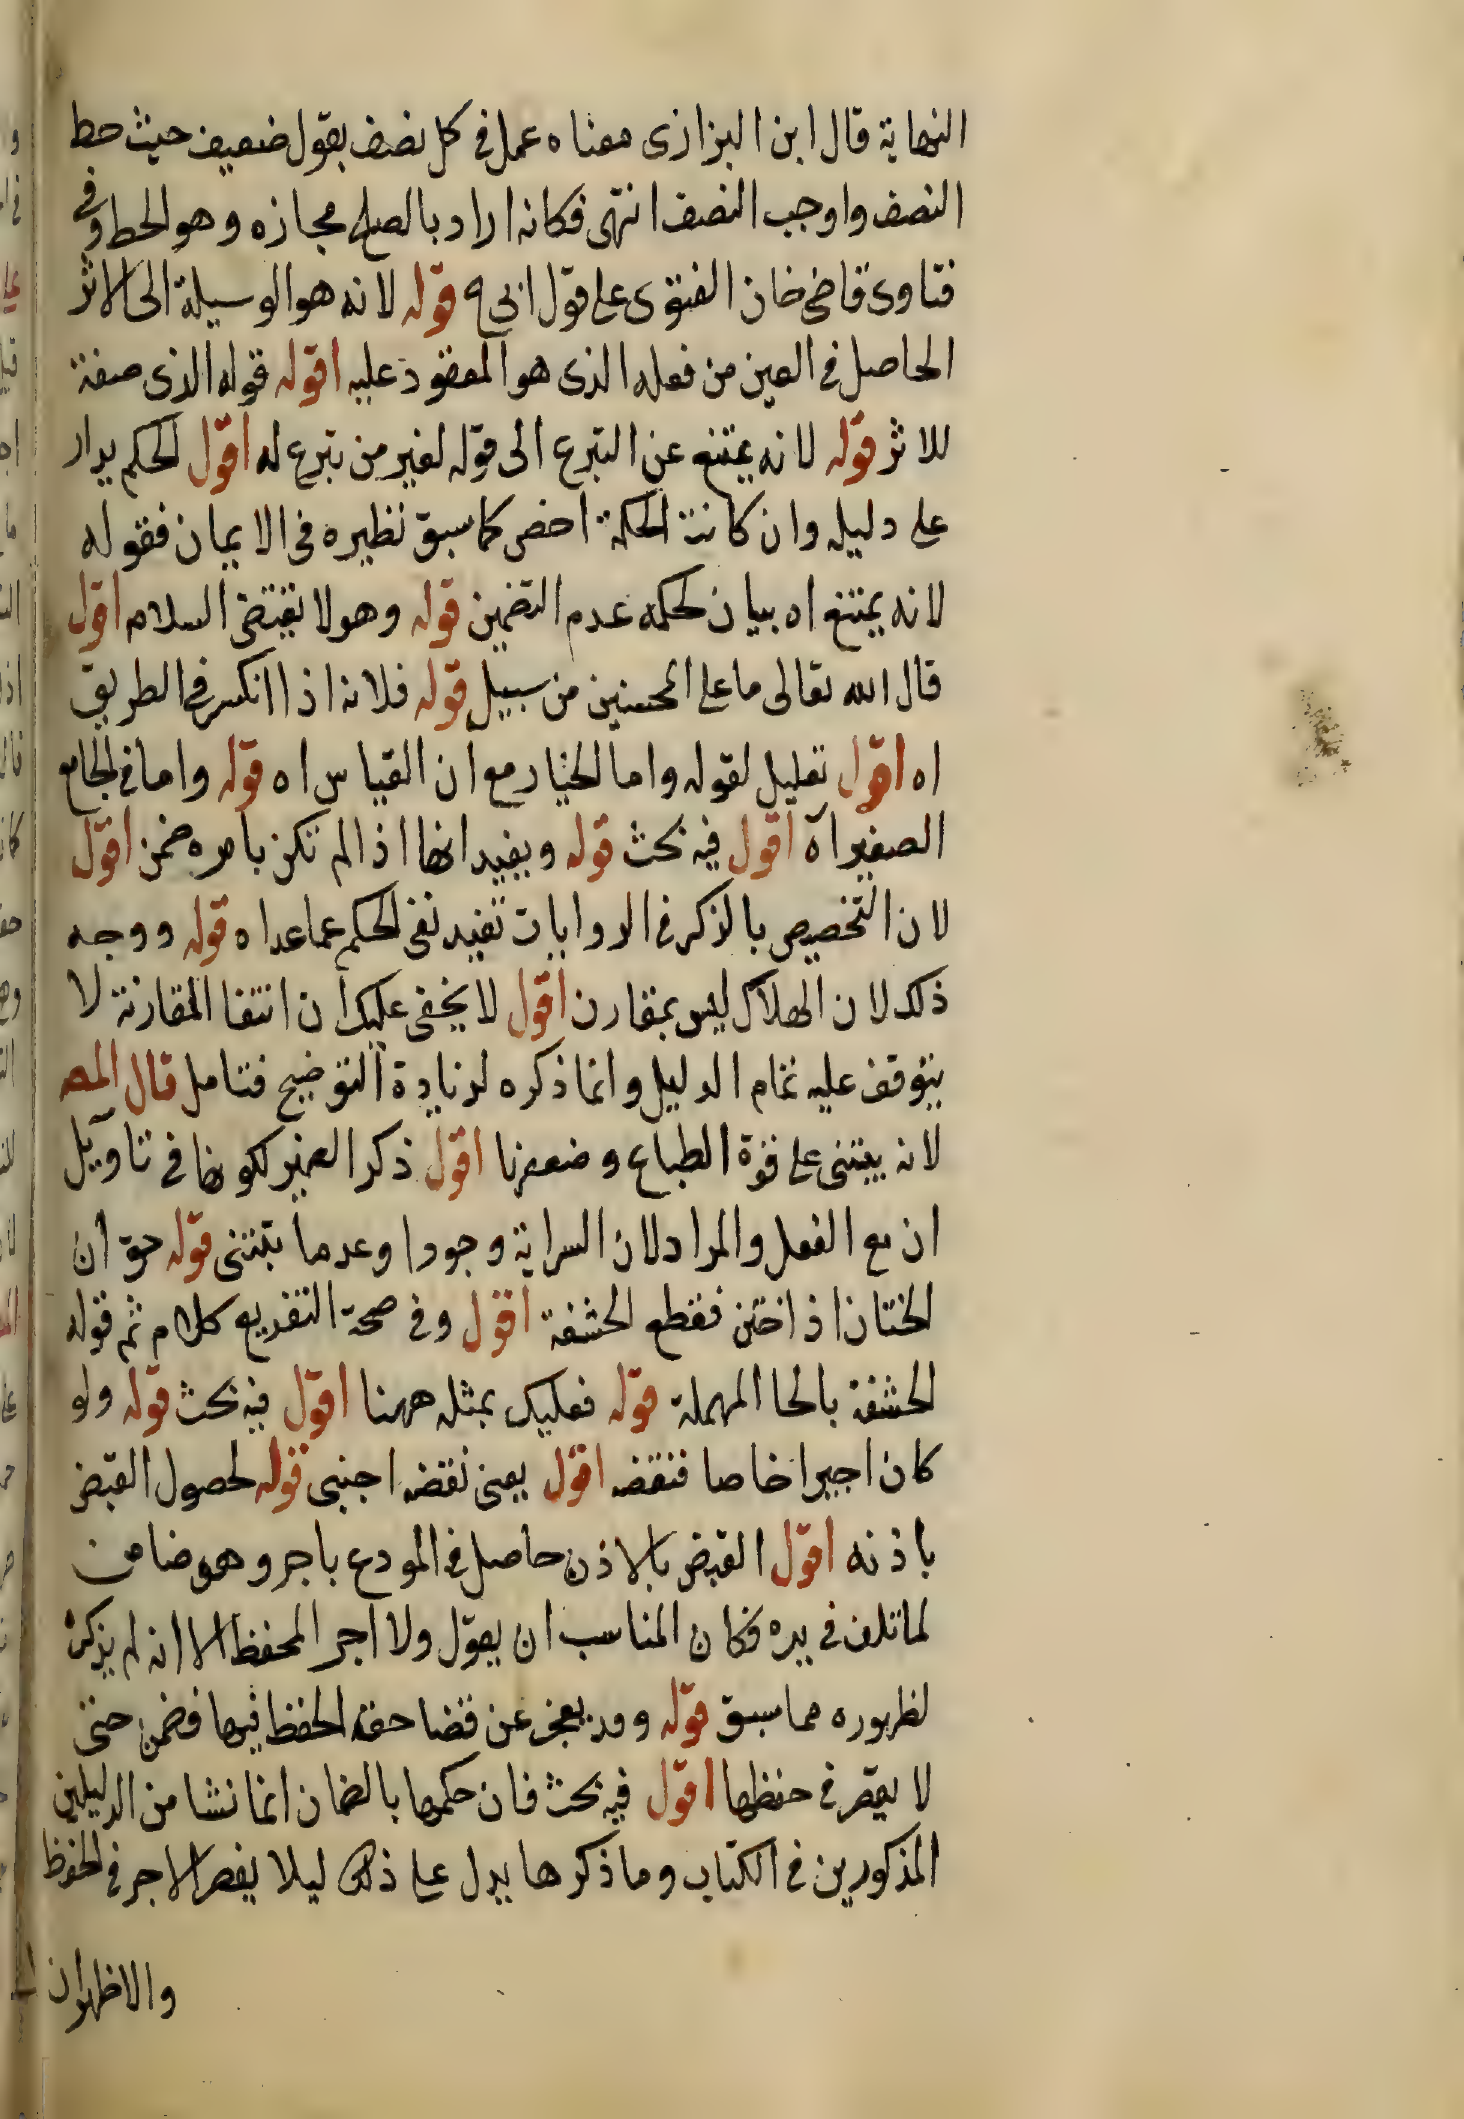 النهاية قال ابن البزازى معناه عمل فى كل نصف بقول ضعيف حيث حط
النصف واوجب النصف انتهى فكانه اراد بالصلح مجازه وهو الحط وفى
فتاوى قاضى خان الفتوى على قول ابى ح قوله لانه هو الوسيلة الى الاثر
الحاصل فى العين من فعله الذى هو المعقود عليه اقول قوله الذى صفة
للاثر قوله لانه يمتنع عن التبرع الى قوله لغير من تبرع له اقول الحكم يدار
على دليله وان كانت الحكمة اخص كما سبق نظيره فى الايمان فقوله
لانه يمتنع اه بيان لحكمه عدم التضمين قوله وهو لا يقتضى السلام اقول
قال الله تعالى ما على المحسنين من سبيل قوله فلانه اذا انكسر فى الطريق
اه اقول تعليل لقوله واما الخيار مع ان القياس اه قوله واما فى الجامع
الصغير اه اقول فيه بحث قوله ويفيد انها اذا لم تكن بامره ضمن اقول
لان التخصيص بالذكر فى الروايات تفيد نفى الحكم عما عداه قوله ووجه
ذلك لان الهلاك ليس بمقارن اقول لا يخفى عليك ان انتفا المقارنة لا
يتوقف عليه تمام الدليل وانما ذكره لزيادة التوضيح فتامل قال المص
لانه يبتنى على قوة الطباع وضعفها اقول ذكر الضمير لكونها فى تاويل
ان مع الفعل والمراد لان السراية وجودا وعدما تبتنى قوله حق ان
الختان اذا ختن فقطع الحشفة اقول وفى صحة التفريع كلام ثم قوله
الحشفة بالحا المهملة قوله فعليك بمثله ههنا اقول فيه بحث قوله ولو
كان اجيرا خاصا فنقضه اقول يعنى نقضه اجنبى قوله لحصول القبض
باذنه اقول القبض بالاذن حاصل فى المودع باجر وهو ضامن
لما تلف فى يده فكان المناسب ان يقول ولا اجر المحفظ الا انه لم يذكره
لظهوره مما سبق قوله وقد يعجز عن قضا حقه الحفظ فيها فضمن حتى
لا يقصر فى حفظها اقول فيه بحث فان حكمها بالضمان انما نشا من الدليلين
المذكورين فى الكتاب وما ذكرها يدل على ذلك ليلا يقصر الاجر فى الحفظ
والاظهر ان